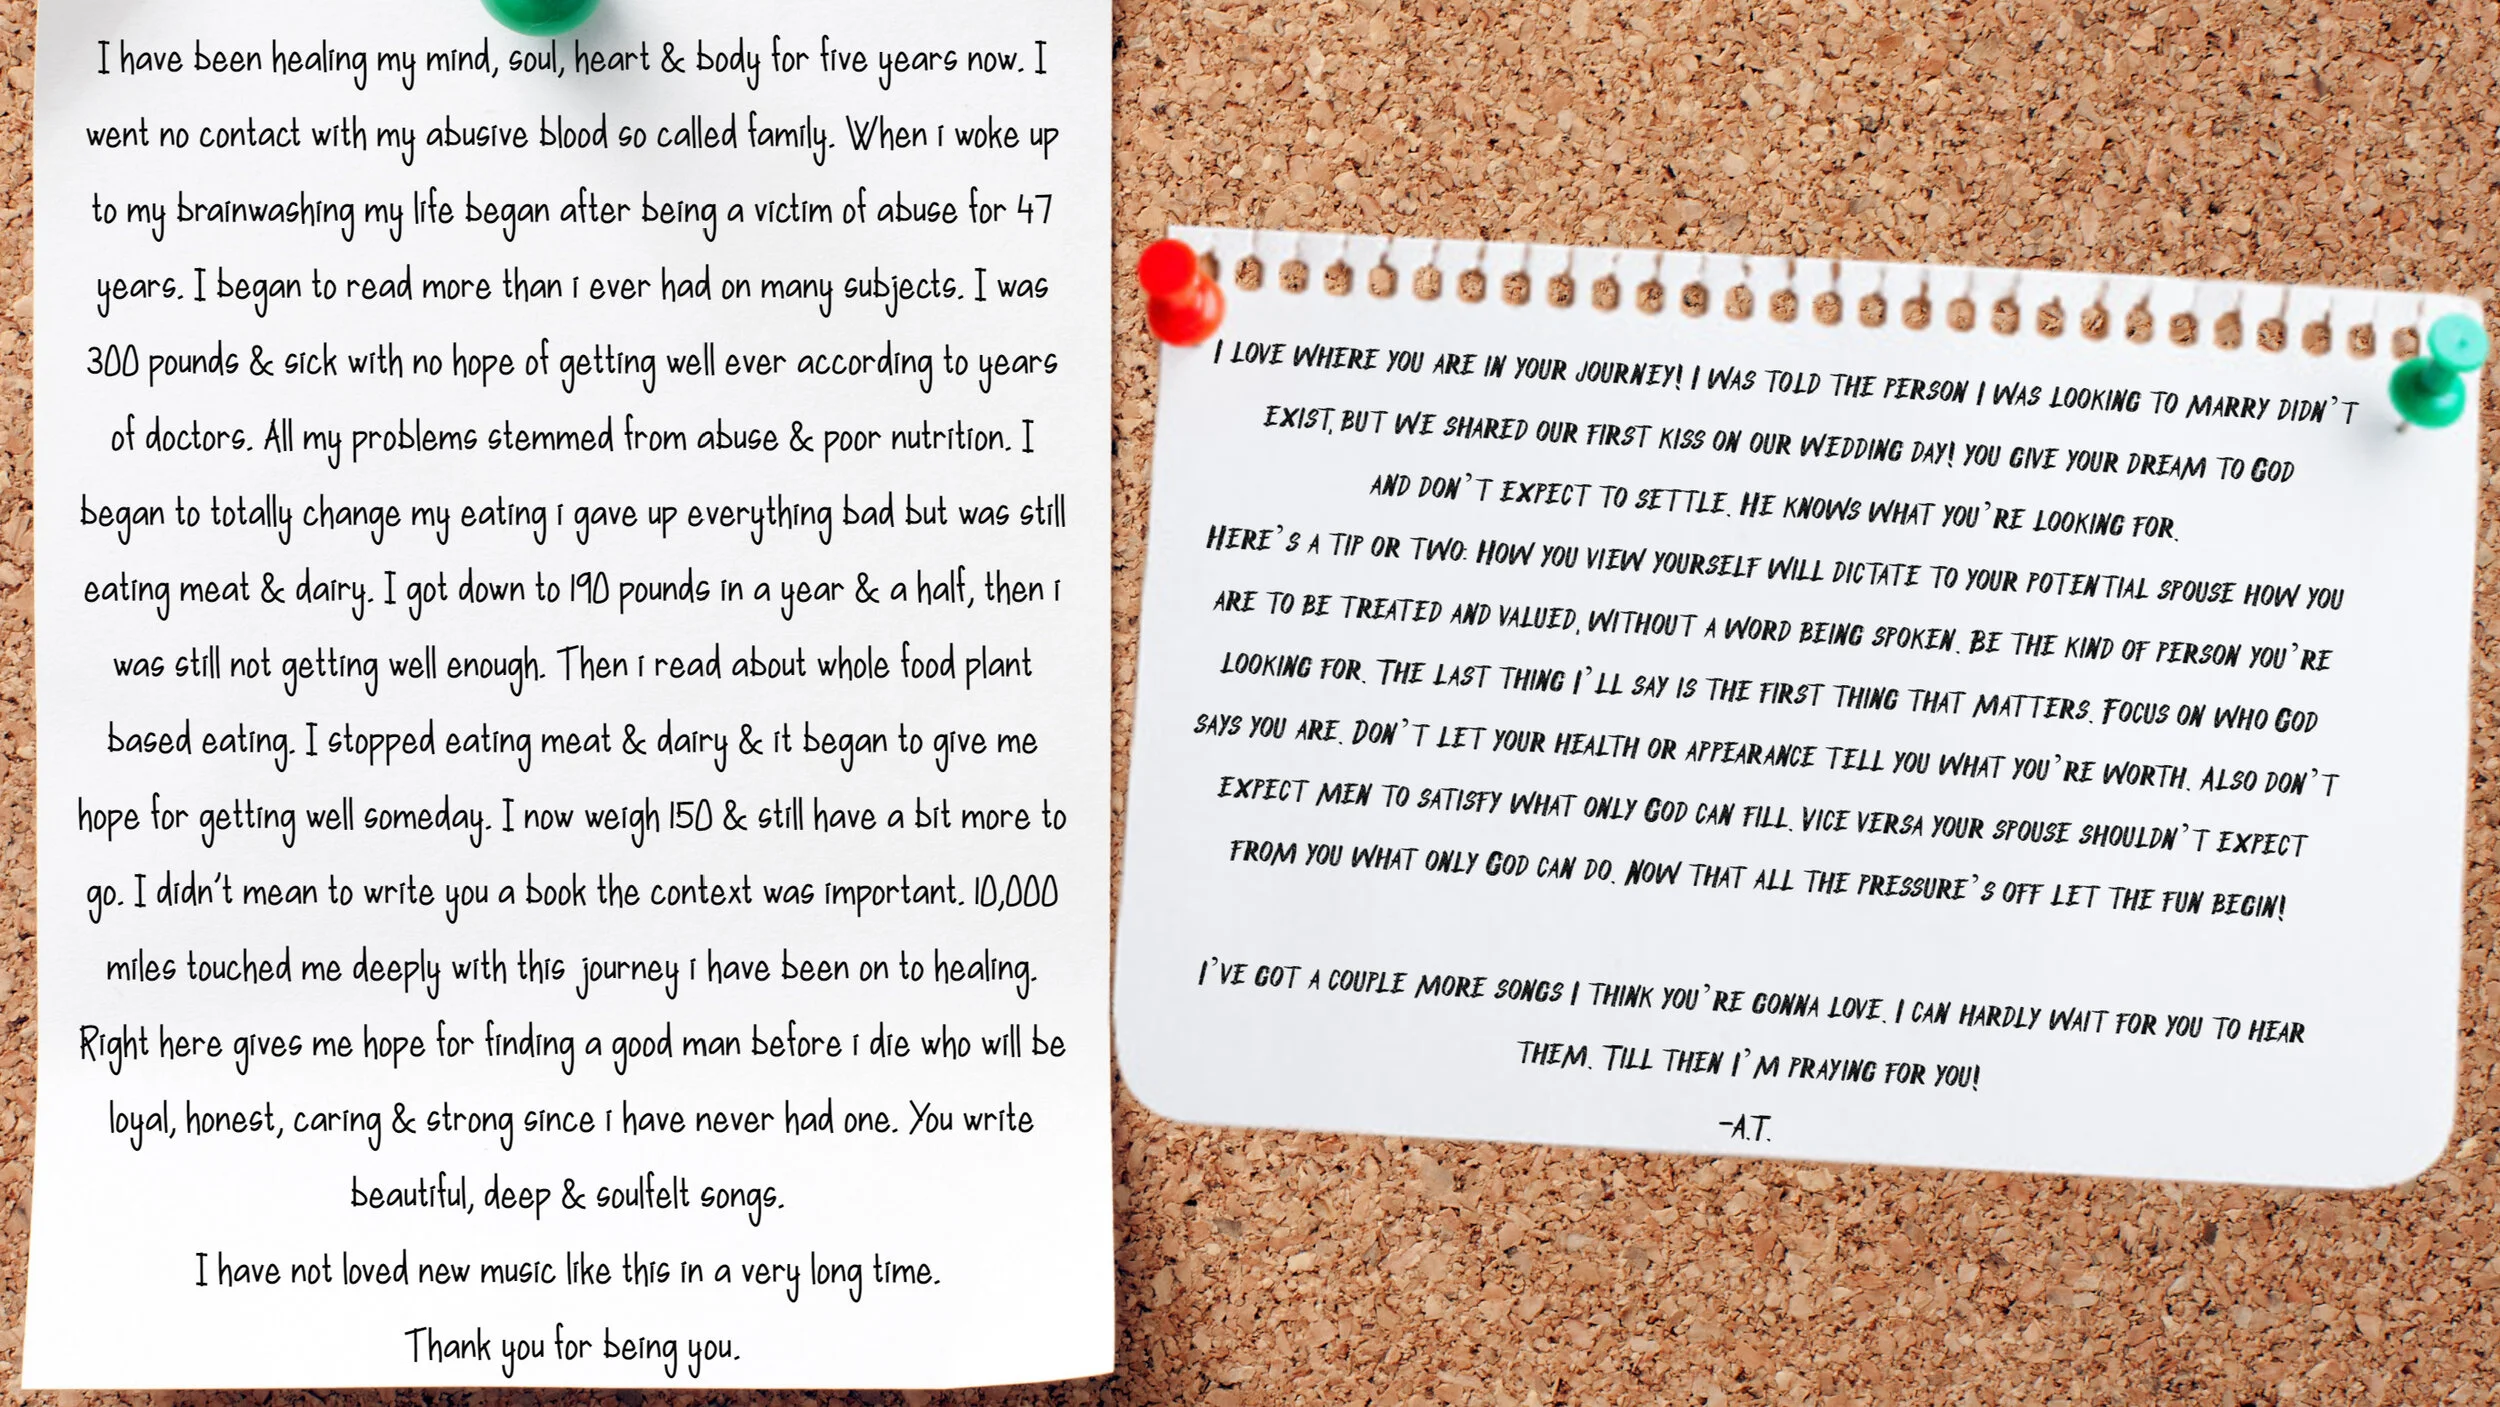 I have been healing my mind, soul, heart & body for five years now. I
went no contact with my abusive blood so called family. When i woke up
to my brainwashing my life began after being a victim of abuse for 47
years. I began to read more than i ever had on many subjects. I was
300 pounds & sick with no hope of getting well ever according to years
of doctors. All my problems stemmed from abuse & poor nutrition. I
began to totally change my eating i gave up everything bad but was still
eating meat & dairy. I got down to 190 pounds in a year & a half, then i
was still not getting well enough. Then i read about whole food plant
based eating. I stopped eating meat & dairy & it began to give me
hope for getting well someday. I now weigh 150 & still have a bit more to
go. I didn't mean to write you a book the context was important. 10,000
miles touched me deeply with this journey i have been on to healing.
Right here gives me hope for finding a good man before i die who will be
loyal, honest, caring & strong since i have never had one. You write
beautiful, deep & soulfelt songs.
I have not loved new music like this in a very long time.
Thank you for being you.
I LOVE WHERE YOU ARE IN YOUR JOURNEY! I WAS TOLD THE PERSON I WAS LOOKING TO MARRY DIDN'T
EXIST, BUT WE SHARED OUR FIRST KISS ON OUR WEDDING DAY! YOU GIVE YOUR DREAM TO GOD
AND DON'T EXPECT TO SETTLE. HE KNOWS WHAT YOU'RE LOOKING FOR.
HERE'S A TIP OR TWO: HOW YOU VIEW YOURSELF WILL DICTATE TO YOUR POTENTIAL SPOUSE HOW YOU
ARE TO BE TREATED AND VALUED, WITHOUT A WORD BEING SPOKEN. BE THE KIND OF PERSON YOU'RE
LOOKING FOR. THE LAST THING I'LL SAY IS THE FIRST THING THAT MATTERS. FOCUS ON WHO GOD
SAYS YOU ARE. DON'T LET YOUR HEALTH OR APPEARANCE TELL YOU WHAT YOU'RE WORTH. ALSO DON'T
EXPECT MEN TO SATISFY WHAT ONLY GOD CAN FILL. VICE VERSA YOUR SPOUSE SHOULDN'T EXPECT
FROM YOU WHAT ONLY GOD CAN DO. NOW THAT ALL THE PRESSURE'S OFF LET THE FUN BEGIN!
I'VE GOT A COUPLE MORE SONGS I THINK YOU'RE GONNA LOVE. I CAN HARDLY WAIT FOR YOU TO HEAR
THEM. TILL THEN I'M PRAYING FOR YOU!
-A.T.